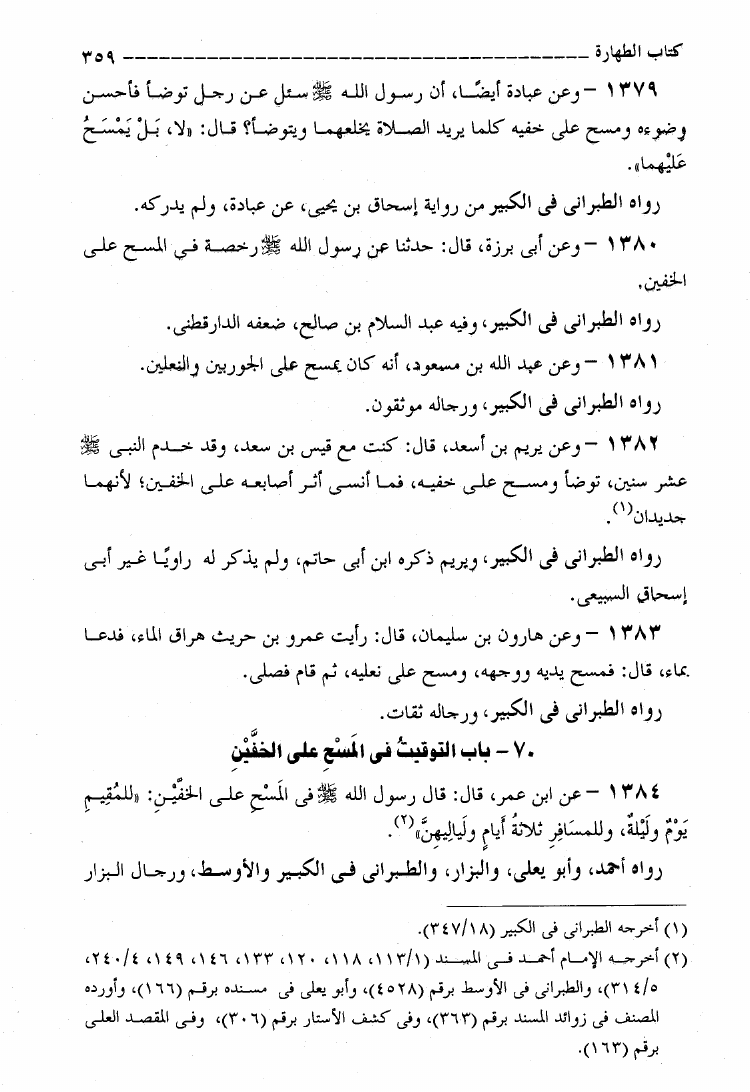 كتاب الطهارة ــــــــــــــــــــــــــــــــــــــــ ٣٥٩
١٣٧٩ - وعن عبادة أيضًا، أن رسول الله ﷺ سئل عن رجل توضأ فأحسن
وضوءه ومسح على خفيه كلما يريد الصلاة يخلعهما ويتوضأ؟ قال: «لا، بَلْ يَمْسَحُ
عَلَيْهما».
رواه الطبرانى فى الكبير من رواية إسحاق بن يحيى، عن عبادة، ولم يدركه.
١٣٨٠ - وعن أبى برزة، قال: حدثنا عن رسول الله ﷺ رخصة فى المسح على
الخفين.
رواه الطبرانى فى الكبير، وفيه عبد السلام بن صالح، ضعفه الدارقطنى.
١٣٨١ - وعن عبد الله بن مسعود، أنه كان يمسح على الجوربين والنعلين.
رواه الطبرانى فى الكبير، ورجاله موثقون.
١٣٨٢ - وعن يريم بن أسعد، قال: كنت مع قيس بن سعد، وقد خدم النبى ﷺ
عشر سنين، توضأ ومسح على خفيه، فما أنسى أثر أصابعه على الخفين؛ لأنهما
جديدان(١).
رواه الطبرانى فى الكبير، ويريم ذكره ابن أبى حاتم، ولم يذكر له راويًا غير أبى
إسحاق السبيعى.
١٣٨٣ - وعن هارون بن سليمان، قال: رأيت عمرو بن حريث هراق الماء، فدعا
بماء، قال: فمسح يديه ووجهه، ومسح على نعليه، ثم قام فصلى.
رواه الطبرانى فى الكبير، ورجاله ثقات.
٧٠ - باب التوقيتُ فى المَسْحِ على الخفَّيْنِ
١٣٨٤ - عن ابن عمر، قال: قال رسول الله ﷺ فى المَسْحِ على الخفَّيْنِ: «للمُقِيمِ
يَوْمٌ ولَيْلةٌ، وللمسَافِرِ ثلاثةُ أَيامٍ ولَيالِيهنَّ»(٢).
رواه أحمد، وأبو يعلى، والبزار، والطبرانى فى الكبير والأوسط، ورجال البزار
(١) أخرجه الطبرانى فى الكبير (٣٤٧/١٨).
(٢) أخرجه الإمام أحمد فى المسند (١١٣/١، ١١٨، ١٢٠، ١٣٣، ١٤٦، ١٤٩، ٢٤٠/٤،
٣١٤/٥)، والطبرانى فى الأوسط برقم (٤٥٢٨)، وأبو يعلى فى مسنده برقم (١٦٦)، وأورده
المصنف فى زوائد المسند برقم (٣٦٣)، وفى كشف الأستار برقم (٣٠٦)، وفى المقصد العلى
برقم (١٦٣).